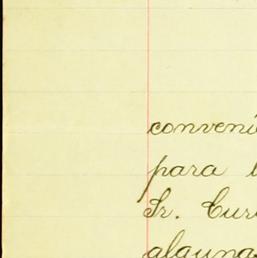 conveni
para l
Sr. Cur
alguna